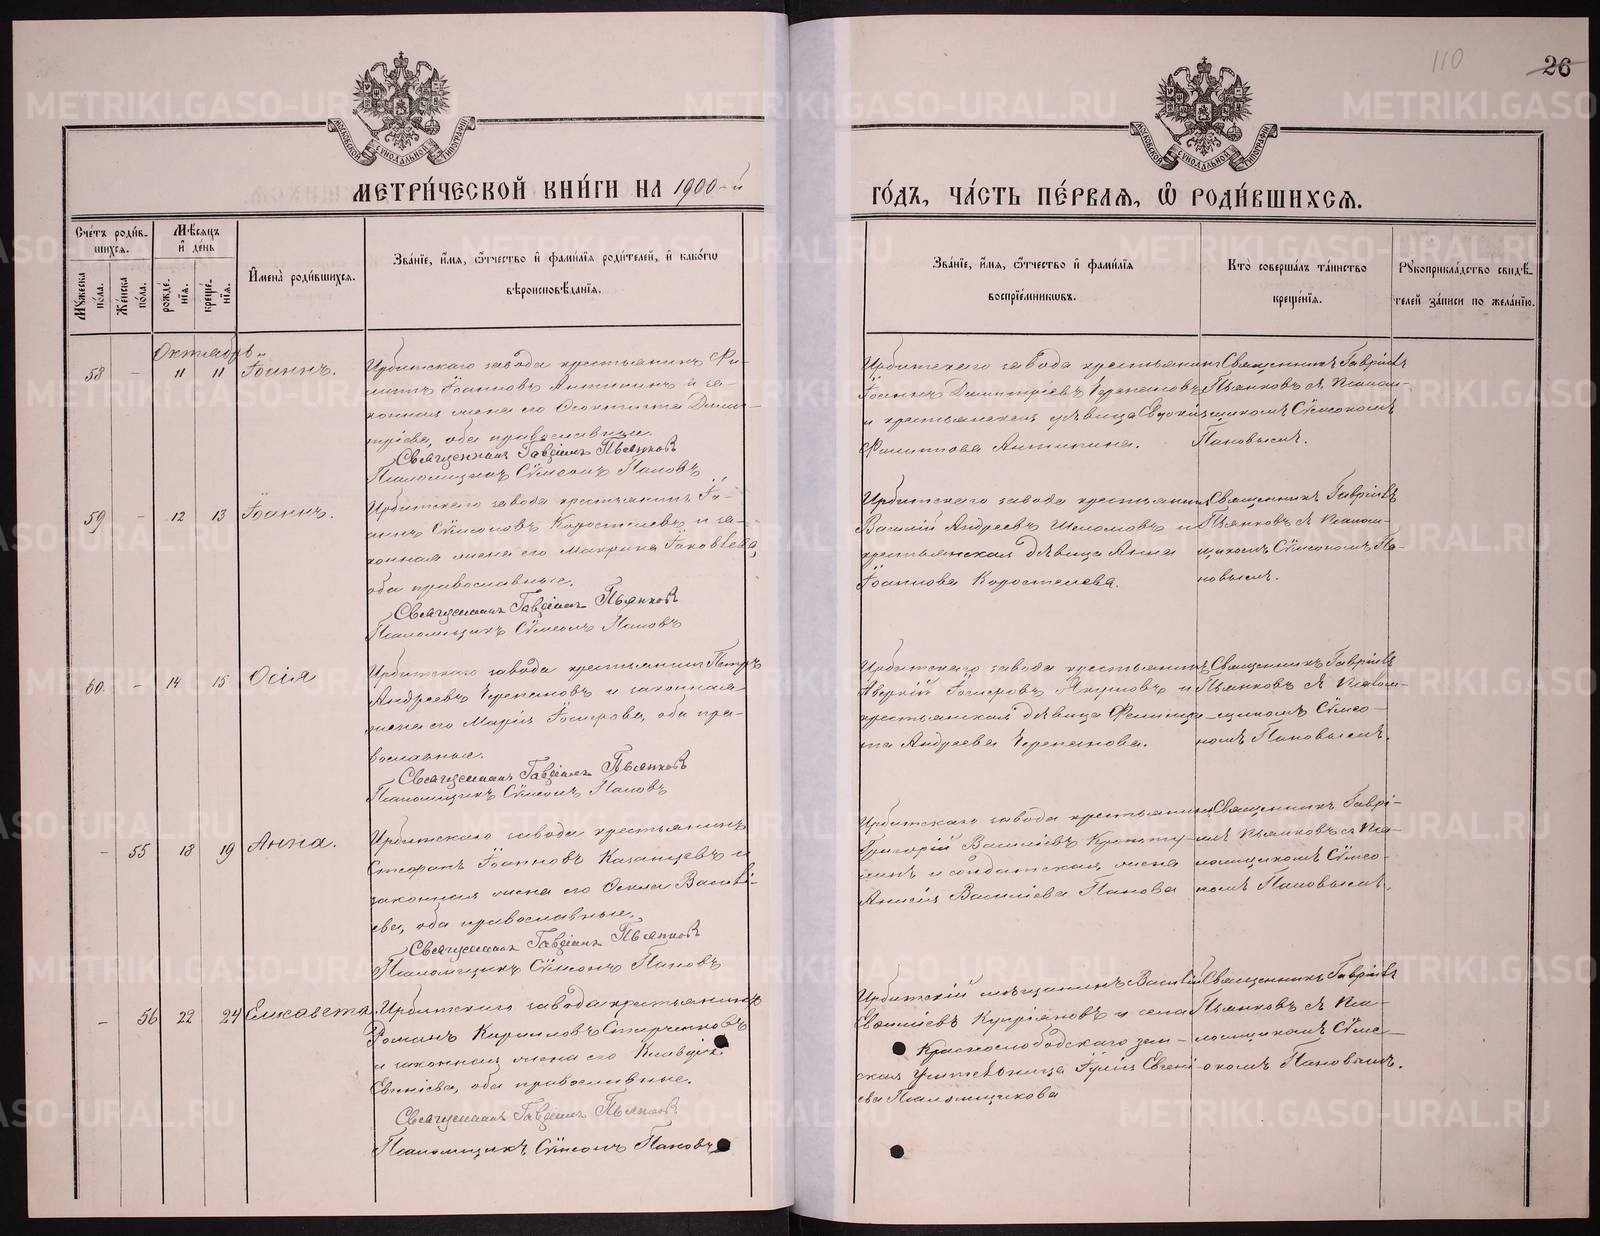 110
26
МОСКОВСКОЙ СѴНОДАЛЬНОЙ ТИПОГРАФІИ
МОСКОВСКОЙ СѴНОДАЛЬНОЙ ТИПОГРАФІИ
МЕТРИ́ЧЕСКОЙ КНИ́ГИ НА 1900-й
ГО́ДЪ, ЧА́СТЬ ПЕ́РВАЯ, Ѽ РОДИ́ВШИХСЯ.
Сче́тъ роди́в-
шихся.
Мꙋ́жеска по́ла.
Же́нска по́ла.
Мѣ́сяцъ
и҆ де́нь
рожде́-
нїя.
креще́-
нїя.
И҆мена̀ роди́вшихся.
Зва́нїе, и҆́мя, ѻ҆́тчество и҆ фами́лїя роди́телей, и҆ како́гѡ
вѣроисповѣ́данїя.
Зва́нїе, и҆́мя, ѻ҆́тчество и҆ фами́лїя
воспрїе́мниковъ.
Кто̀ соверша́лъ та́инство
креще́нїя.
Рꙋкоприкла́дство свидѣ́-
телей за́писи по жела́нїю.
Октябрь.
58 - 11 11 Іоаннъ.
Ирбитскаго завода крестьянинъ Фи-
липпъ Іоанновъ Антипинъ и за-
конная жена его Ѳеоктиста Дими-
тріева, оба православные.
Священникъ Гавріилъ Пьянковъ
Псаломщикъ Сѵмеонъ Пановъ
Ирбитскаго завода крестьянинъ
Іоаннъ Димитріевъ Черепановъ
и крестьянская дѣвица Евдокія
Филиппова Антипина.
Священникъ Гавріилъ
Пьянковъ съ Псалом-
щикомъ Сѵмеономъ
Пановымъ.
59 - 12 13 Іоаннъ.
Ирбитскаго завода крестьянинъ Іо-
аннъ Сѵмеоновъ Коростелевъ и за-
конная жена его Макрина Іаковлева,
оба православные.
Священникъ Гавріилъ Пьянковъ
Псаломщикъ Сѵмеонъ Пановъ
Ирбитскаго завода крестьянинъ
Василій Андреевъ Шеломовъ и
крестьянская дѣвица Анна
Іоаннова Коростелева.
Священникъ Гавріилъ
Пьянковъ съ Псалом-
щикомъ Сѵмеономъ Па-
новымъ.
60. - 14 15 Осія
Ирбитскаго завода крестьянинъ Петръ
Андреевъ Черепановъ и законная
жена его Марія, оба пра-
вославные.
Священникъ Гавріилъ Пьянковъ
Псаломщикъ Сѵмеонъ Пановъ
Ирбитскаго завода крестьянинъ
Аверкій Якуповъ и
крестьянская дѣвица
Андреева Черепанова.
Священникъ Гавріилъ
Пьянковъ съ Псалом-
щикомъ Сѵмео-
номъ Пановымъ.
- 55 18 19 Анна.
Ирбитскаго завода крестьянинъ
Стефанъ Іоанновъ Казанцевъ и
законная жена его Ѳекла Василі-
ева, оба православные.
Священникъ Гавріилъ Пьянковъ
Псаломщикъ Сѵмеонъ Пановъ
Ирбитскаго завода крестьянинъ
Григорій Василіевъ
и солдатская жена
Анисія Василіева Панова
Священникъ Гаврі-
илъ Пьянковъ съ Пса-
ломщикомъ Сѵмео-
номъ Пановымъ.
- 56 22 24 Елисавета.
Ирбитскаго завода крестьянинъ
Романъ Кирилловъ Старченковъ
и законная жена его Клавдія
Евгеніева, оба православные.
Священникъ Гавріилъ Пьянковъ
Псаломщикъ Сѵмеонъ Пановъ
Ирбитскій мѣщанинъ Василій
Купріяновъ и села
Краснослободскаго зем-
ская учительница Юлія Евгені-
ева Псаломщикова
Священникъ Гавріилъ
Пьянковъ съ Пса-
ломщикомъ Сѵме-
ономъ Пановымъ.
METRIKI.GASO-URAL.RU